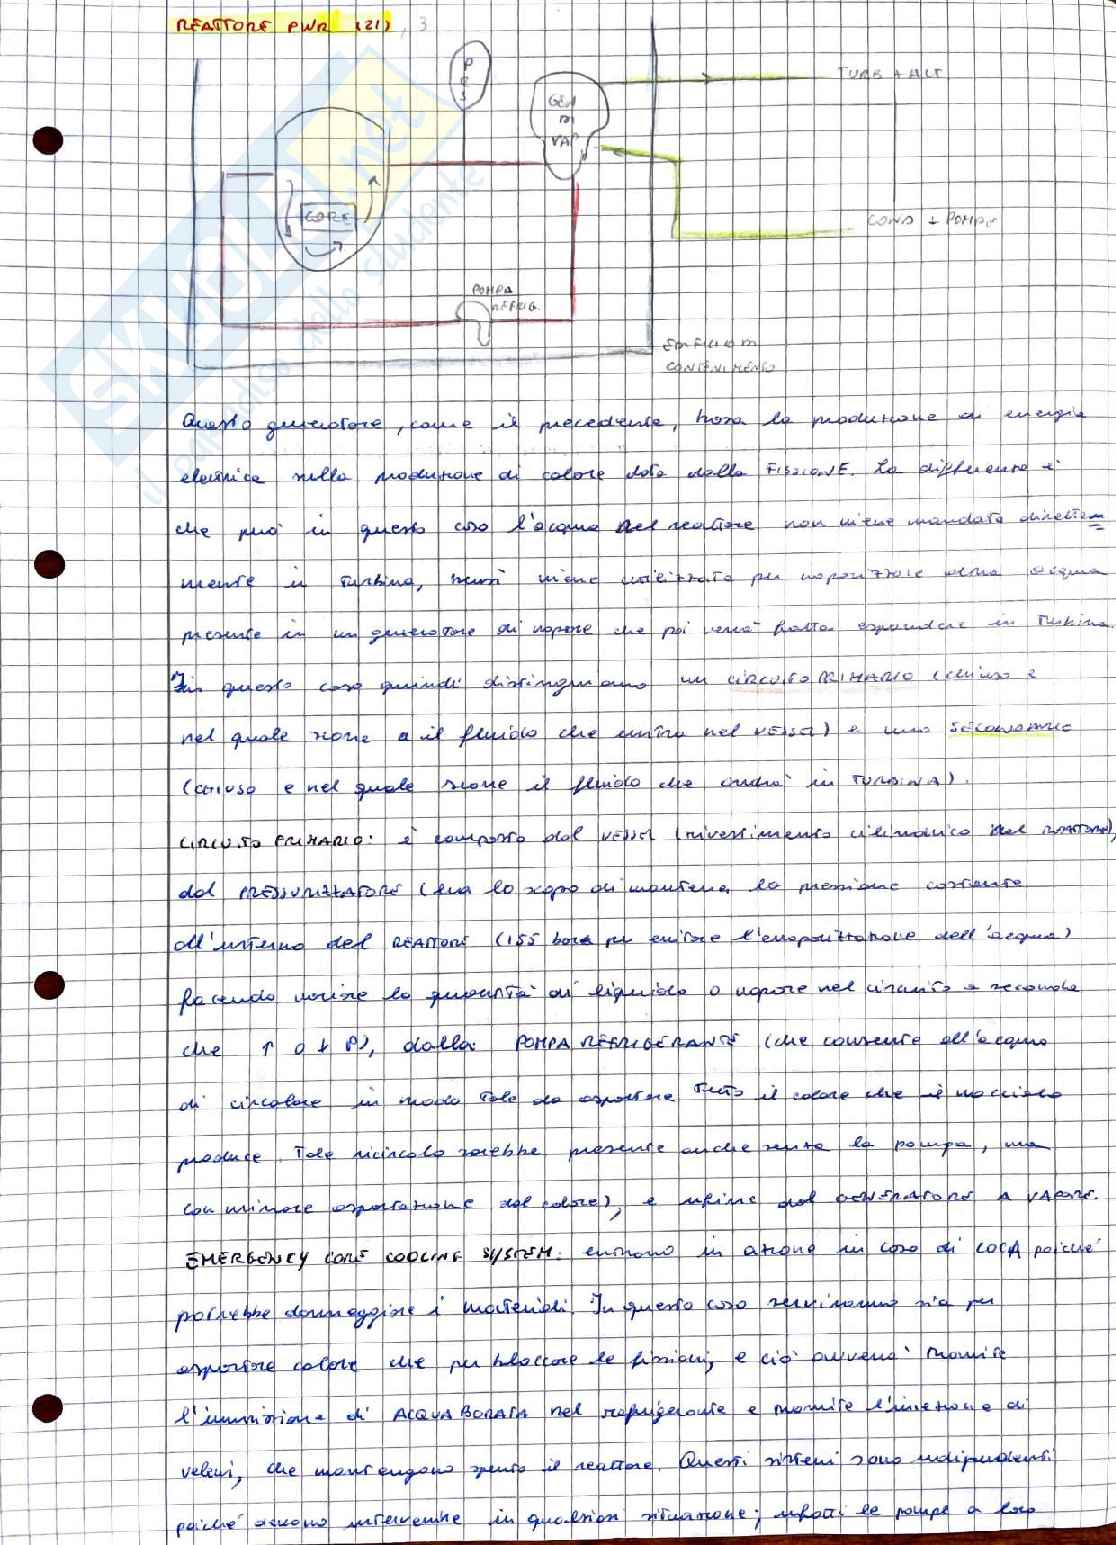 REATTORE PWR (21), 3
PRS
GEN
DI
VAP
TURB + ALT
CORE
COND + POMPE
POMPA
REFRIG.
EDIFICIO DI
CONTENIMENTO
SKUOLA.net
il paradiso dello studente
Questo generatore, come il precedente, trova la produzione di energia
elettrica nella produzione di calore data dalla FISSIONE. La differenza è
che però in questo caso l'acqua nel reattore non viene mandata direttam
mente in turbina, bensì viene utilizzata per vaporizzare altra acqua
presente in un generatore di vapore che poi verrà fatta espandere in turbina.
In questo caso quindi distinguiamo un CIRCUITO PRIMARIO (chiuso e
nel quale scorre il fluido che entra nel VESSEL) e uno SECONDARIO
(chiuso e nel quale scorre il fluido che andrà in TURBINA).
CIRCUITO PRIMARIO: è composto dal VESSEL (rivestimento cilindrico del REATTORE),
dal PRESSURIZZATORE (ha lo scopo di mantenere la pressione costante
all'interno del REATTORE (155 bar per evitare l'evaporizzazione dell'acqua)
facendo variare la quantità di liquido o vapore nel circuito a seconda
che ↑ o ↓ P), dalla POMPA REFRIGERANTE (che consente all'acqua
di circolare in modo tale da asportare tutto il calore che il nocciolo
produce. Tale ricircolo sarebbe presente anche senza la pompa, ma
con minore asportazione del calore), e infine dal GENERATORE A VAPORE.
EMERGENCY CORE COOLING SYSTEM: entrano in azione in caso di LOCA poichè
potrebbe danneggiare i materiali. In questo caso serviranno sia per
asportare calore che per bloccare le fissioni, e ciò avverrà tramite
l'immissione di ACQUA BORATA nel refrigerante e tramite l'iniezione di
veleni, che mantengono spento il reattore. Questi sistemi sono indipendenti
poichè devono intervenire in qualsiasi situazione; infatti le pompe a loro